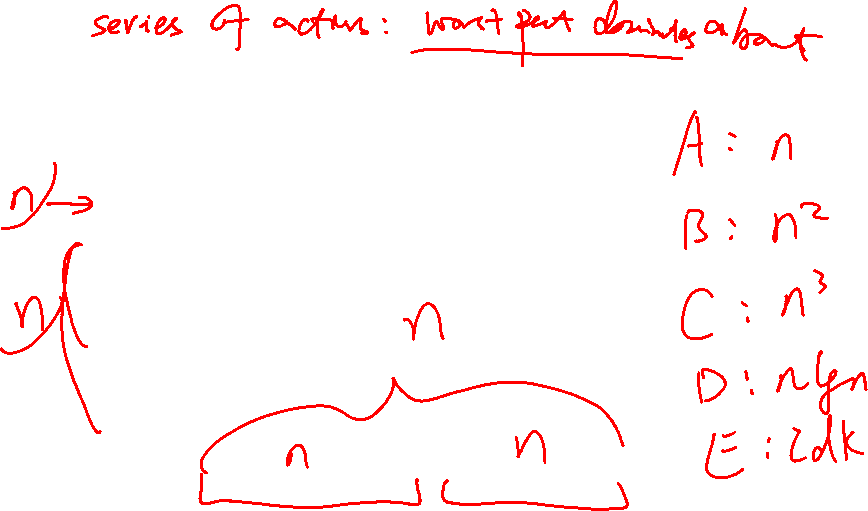 series of actions: worst part dominates about
A: n
n →
B: n²
n
C: n³
n
D: n lg n
n n
E: idk